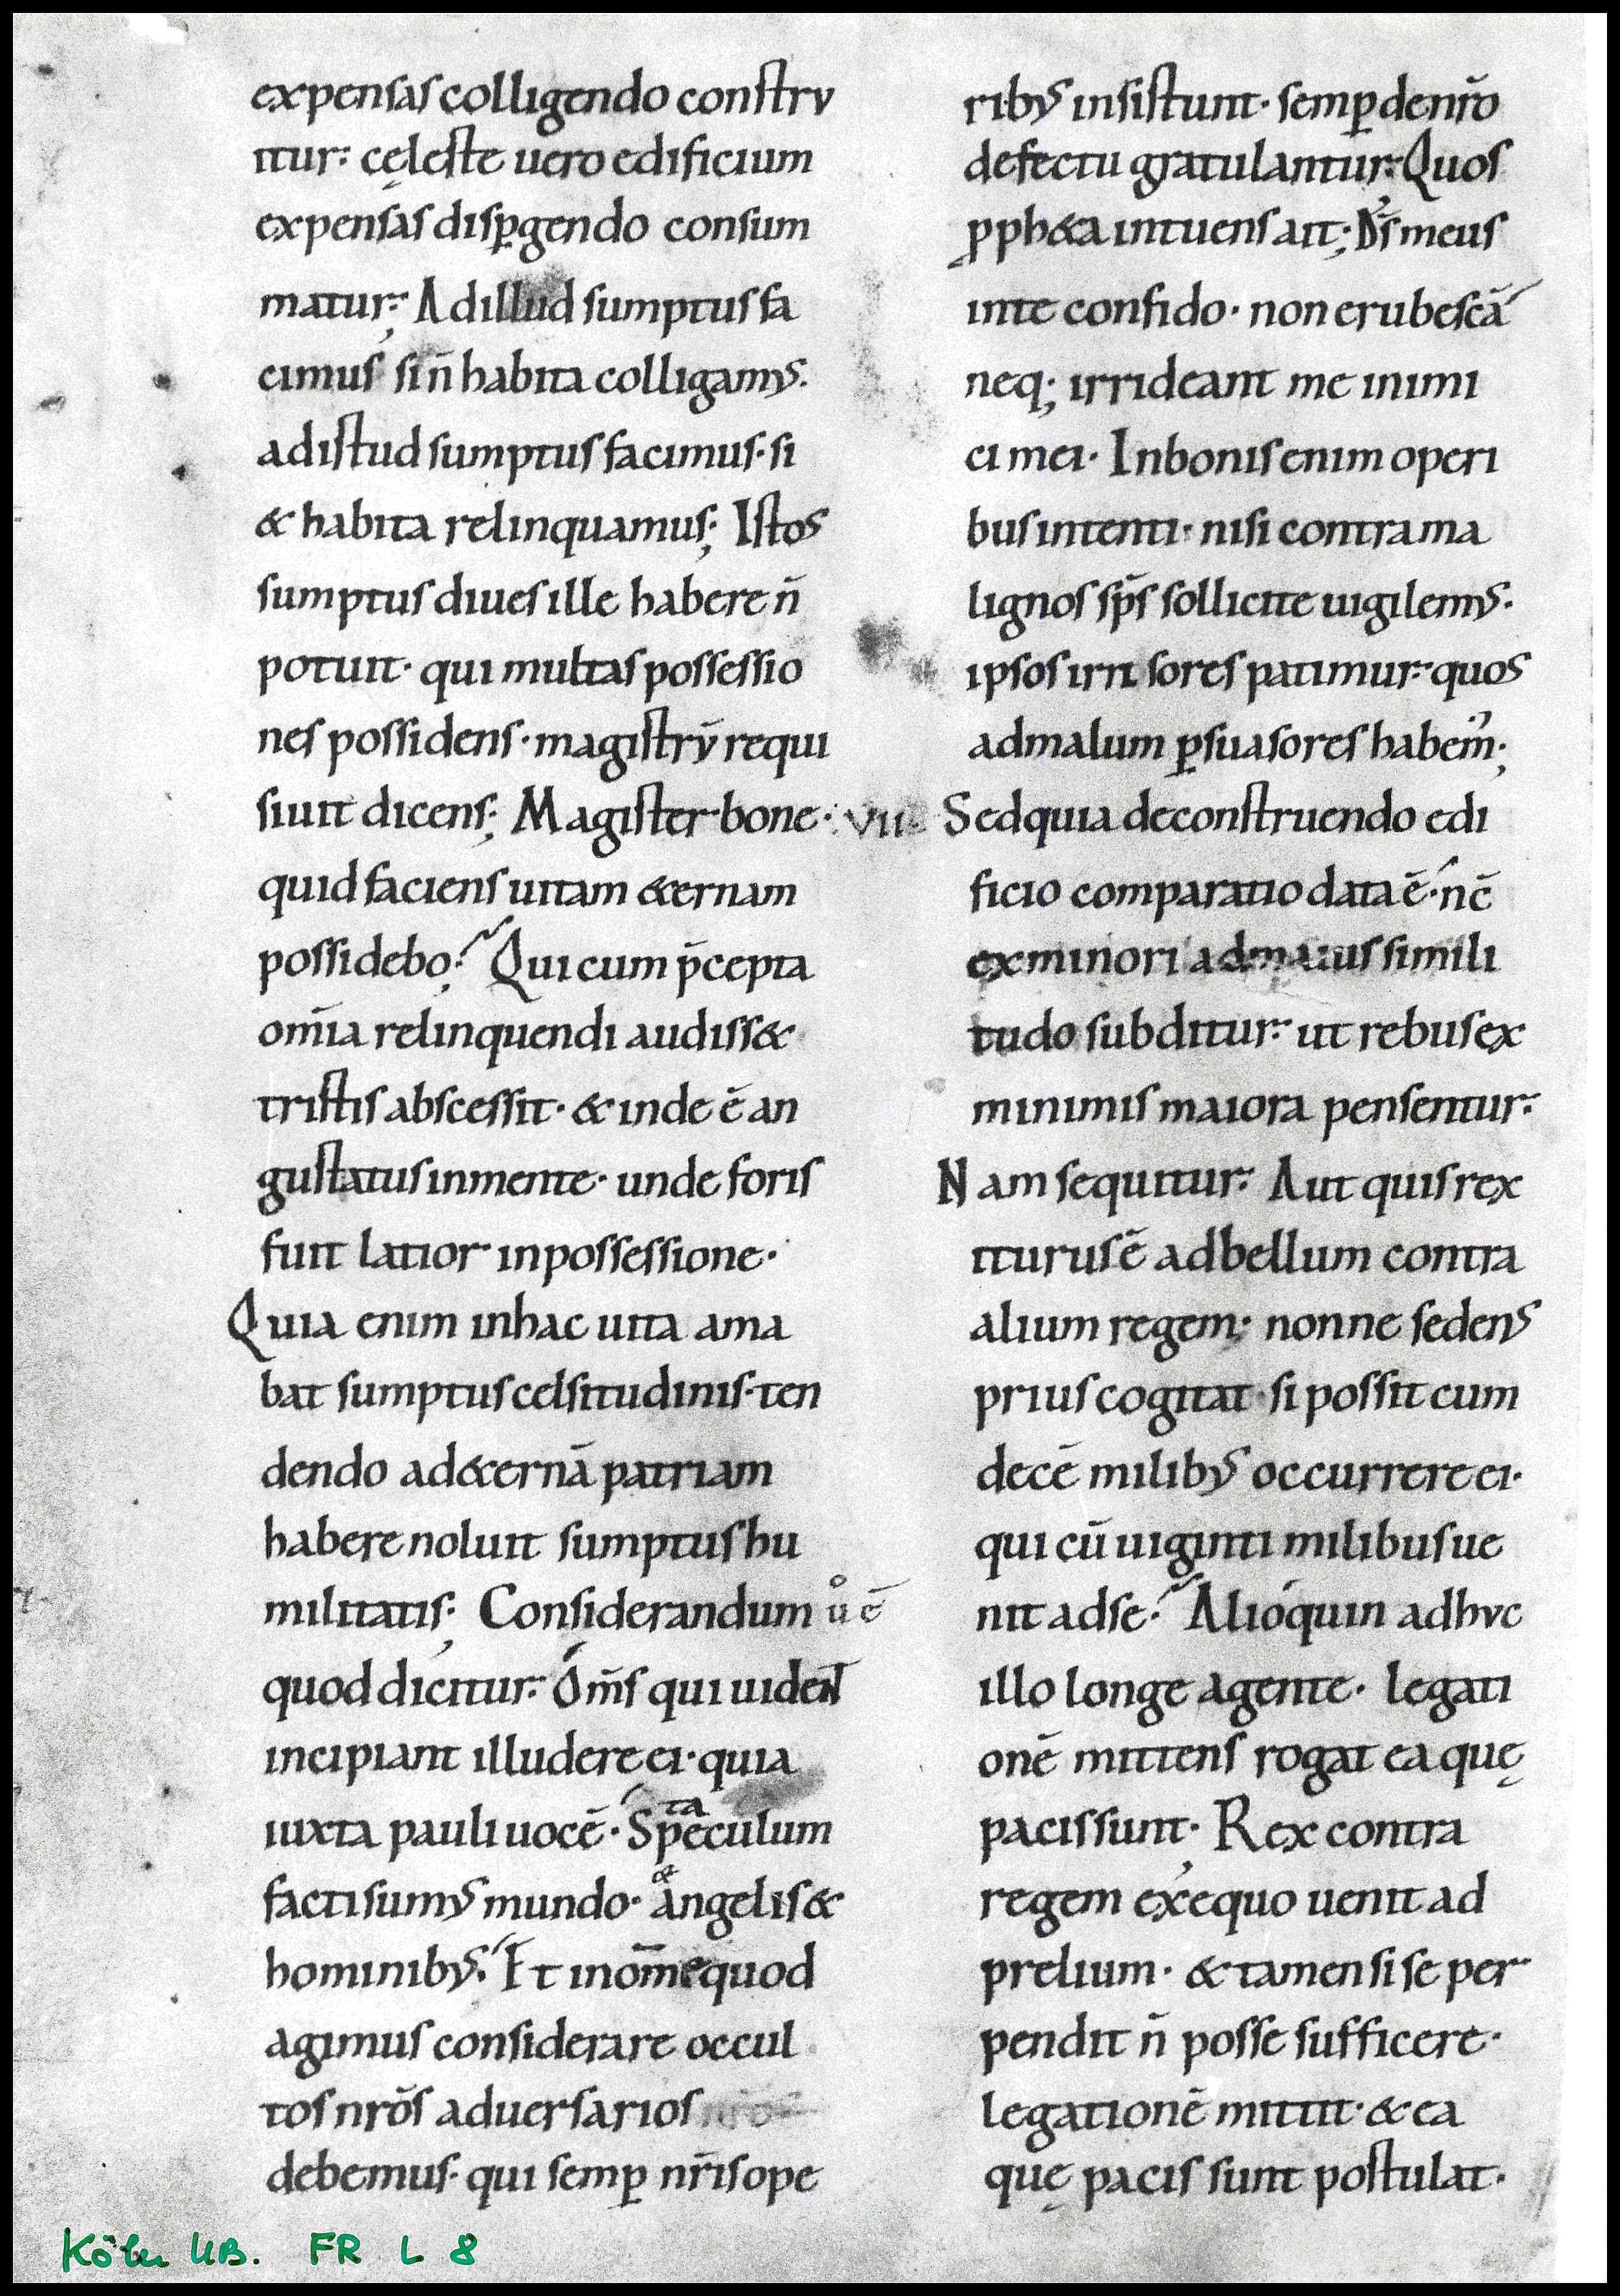 expensas colligendo constru
itur: cęleste uero edificium
expensas disꝑgendo consum
matur; Ad illud sumptus fa
cimus si n̄ habita colligamus.
ad istud sumptus facimus· si
& habita relinquamus; Istos
sumptus diues ille habere n̄
potuit· qui multas possessio
nes possidens· magistrū requi
siuit dicens; Magister bone·
quid faciens uitam &ernam
possidebo? Qui cum p̄cepta
om̄ia relinquendi audiss&
tristis abscessit· & inde ē an
gustatus in mente· unde foris
fuit latior in possessione·
Quia enim in hac uita ama
bat sumptus celsitudinis· ten
dendo ad &ernā patriam
habere noluit sumptus hu
militatis; Considerandum uͦ ē
quod dicitur: Om̄s qui uident
incipiant illudere ei· quia
iuxta pauli uocē· Speculum
ta
facti sumus mundo· & angelis &
hominibus. Et in om̄e quod
agimus considerare occul
tos nr̄os aduersarios
debemus· qui semꝑ nr̄is ope
ribus insistunt· semꝑ de nr̄o
defectu gratulantur: Quos
ꝓph&a intuens ait; D̄s meus
in te confido· non erubescā
neq; irrideant me inimi
ci mei· In bonis enim operi
bus intenti· nisi contra ma
lignos sp̄s sollicite uigilemus·
ipsos irrisores patimur: quos
ad malum ꝑsuasores habem';
VII Sed quia de construendo edi
ficio comparatio data ē· nc̄
ex minori ad maius simili
tudo subditur: ut rebus ex
minimis maiora pensentur:
Nam sequitur: Aut quis rex
iturus ē ad bellum contra
alium regem· nonne sedens
prius cogitat· si possit cum
decē milibus occurrere ei·
qui cū uiginti milibus ue
nit ad se? Alioquin adhuc
illo longe agente· legati
onē mittens rogat ea quę
pacis sunt; Rex contra
regem ex equo uenit ad
prelium· & tamen si se per
pendit n̄ posse sufficere·
legationē mittit· & ea
quę pacis sunt postulat·
Köln UB. FR L 8